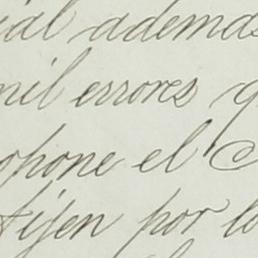 ial ademas
mil errores q
opone el C
tijen por lo